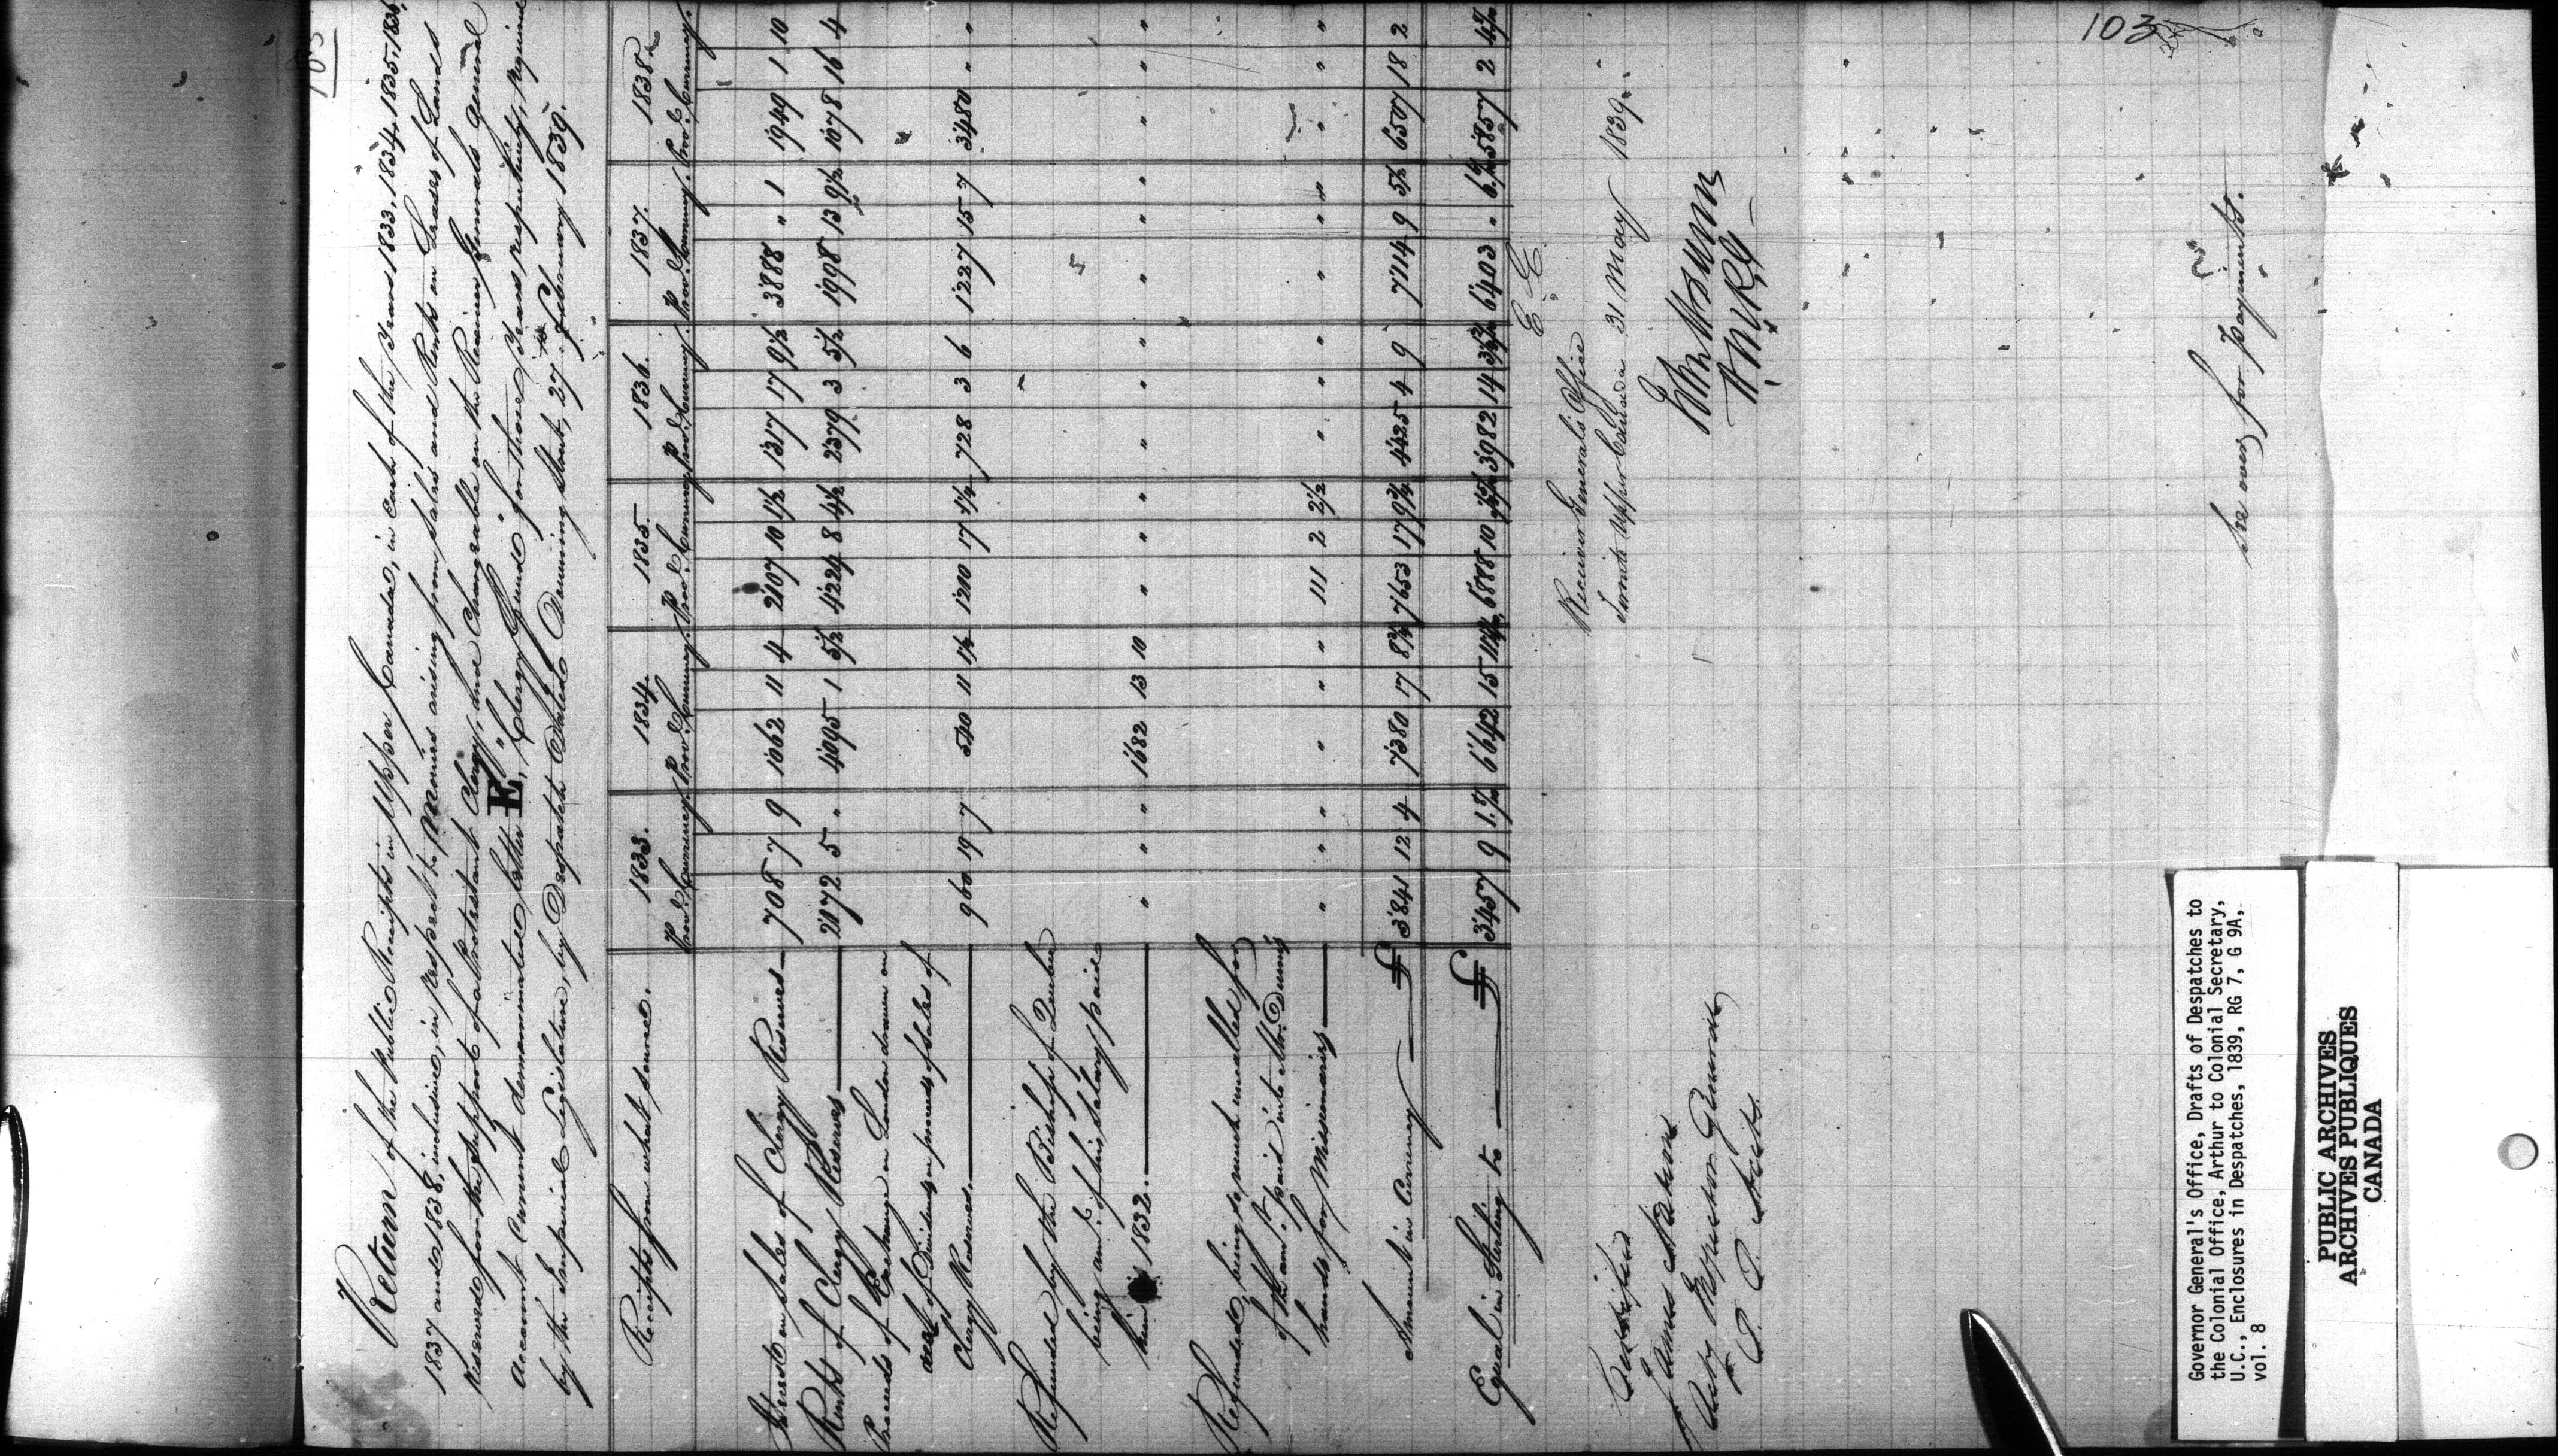 103
Return of the Public Receipts in Upper Canada, in each of the Years 1833, 1834, 1835, 1836,
1837 and 1838, inclusive, in respect to Monies arising from sales and Rents on Leases of Lands
Reserved for the support of a Protestant Clergy, and Chargeable in the Receiver Generals general
Account Current denominated letter E, "Clergy Fund" for those Years respectively, required
by the Imperial Legislature, by Despatch dated Downing Street, 27th February 1839.
Receipts from what source. 1833. 1834. 1835. 1836. 1837. 1838.
Prov. Currency. Prov. Currency. Prov. Currency. Prov. Currency. Prov. Currency. Prov. Currency.
Interest on Sales of Clergy Reserves 708 7 9 1062 11 4 2107 10 1½ 1317 17 9½ 3888 " 1 1949 1 10
Rents of Clergy Reserves 2172 5 " 4095 1 5½ 4224 8 4½ 2379 3 5½ 1998 13 9½ 1078 16 4
Proceeds of Exchange on London drawn on
acct of Dividends on proceeds of Sales of
Clergy Reserves. 960 19 7 540 11 1¼ 1210 17 1¼ 728 3 6 1227 15 7 3480 " "
Refunded by the Bishop of Quebec
being amt. of his salary paid
him in 1832. " " " 1682 13 10 " " " " " " " " " " " "
Refunded, being so much uncalled for
of the amt. paid into Mr. Dunn's
hands for Missionaries " " " " " " 111 2 2½ " " " " " " " " "
Amount in Currency £ 3841 12 4 7380 17 8¾ 7653 17 9¾ 4425 4 9 7114 9 5½ 6507 18 2
Equal in Sterling to £ 3457 9 1 6642 15 11 6888 10 3982 14 3 6403 " 6 5857 2 4
E. E.
Receiver General's Office
Toronto Upper Canada 31 May 1839.
John H Dunn
H.M.R.G
Certified
James Nation
Acty Inspector General
P. P. Accts.
See over for payments.
103
Governor General's Office, Drafts of Despatches to
the Colonial Office, Arthur to Colonial Secretary,
U.C., Enclosures in Despatches, 1839, RG 7, G 9A,
vol. 8
PUBLIC ARCHIVES
ARCHIVES PUBLIQUES
CANADA